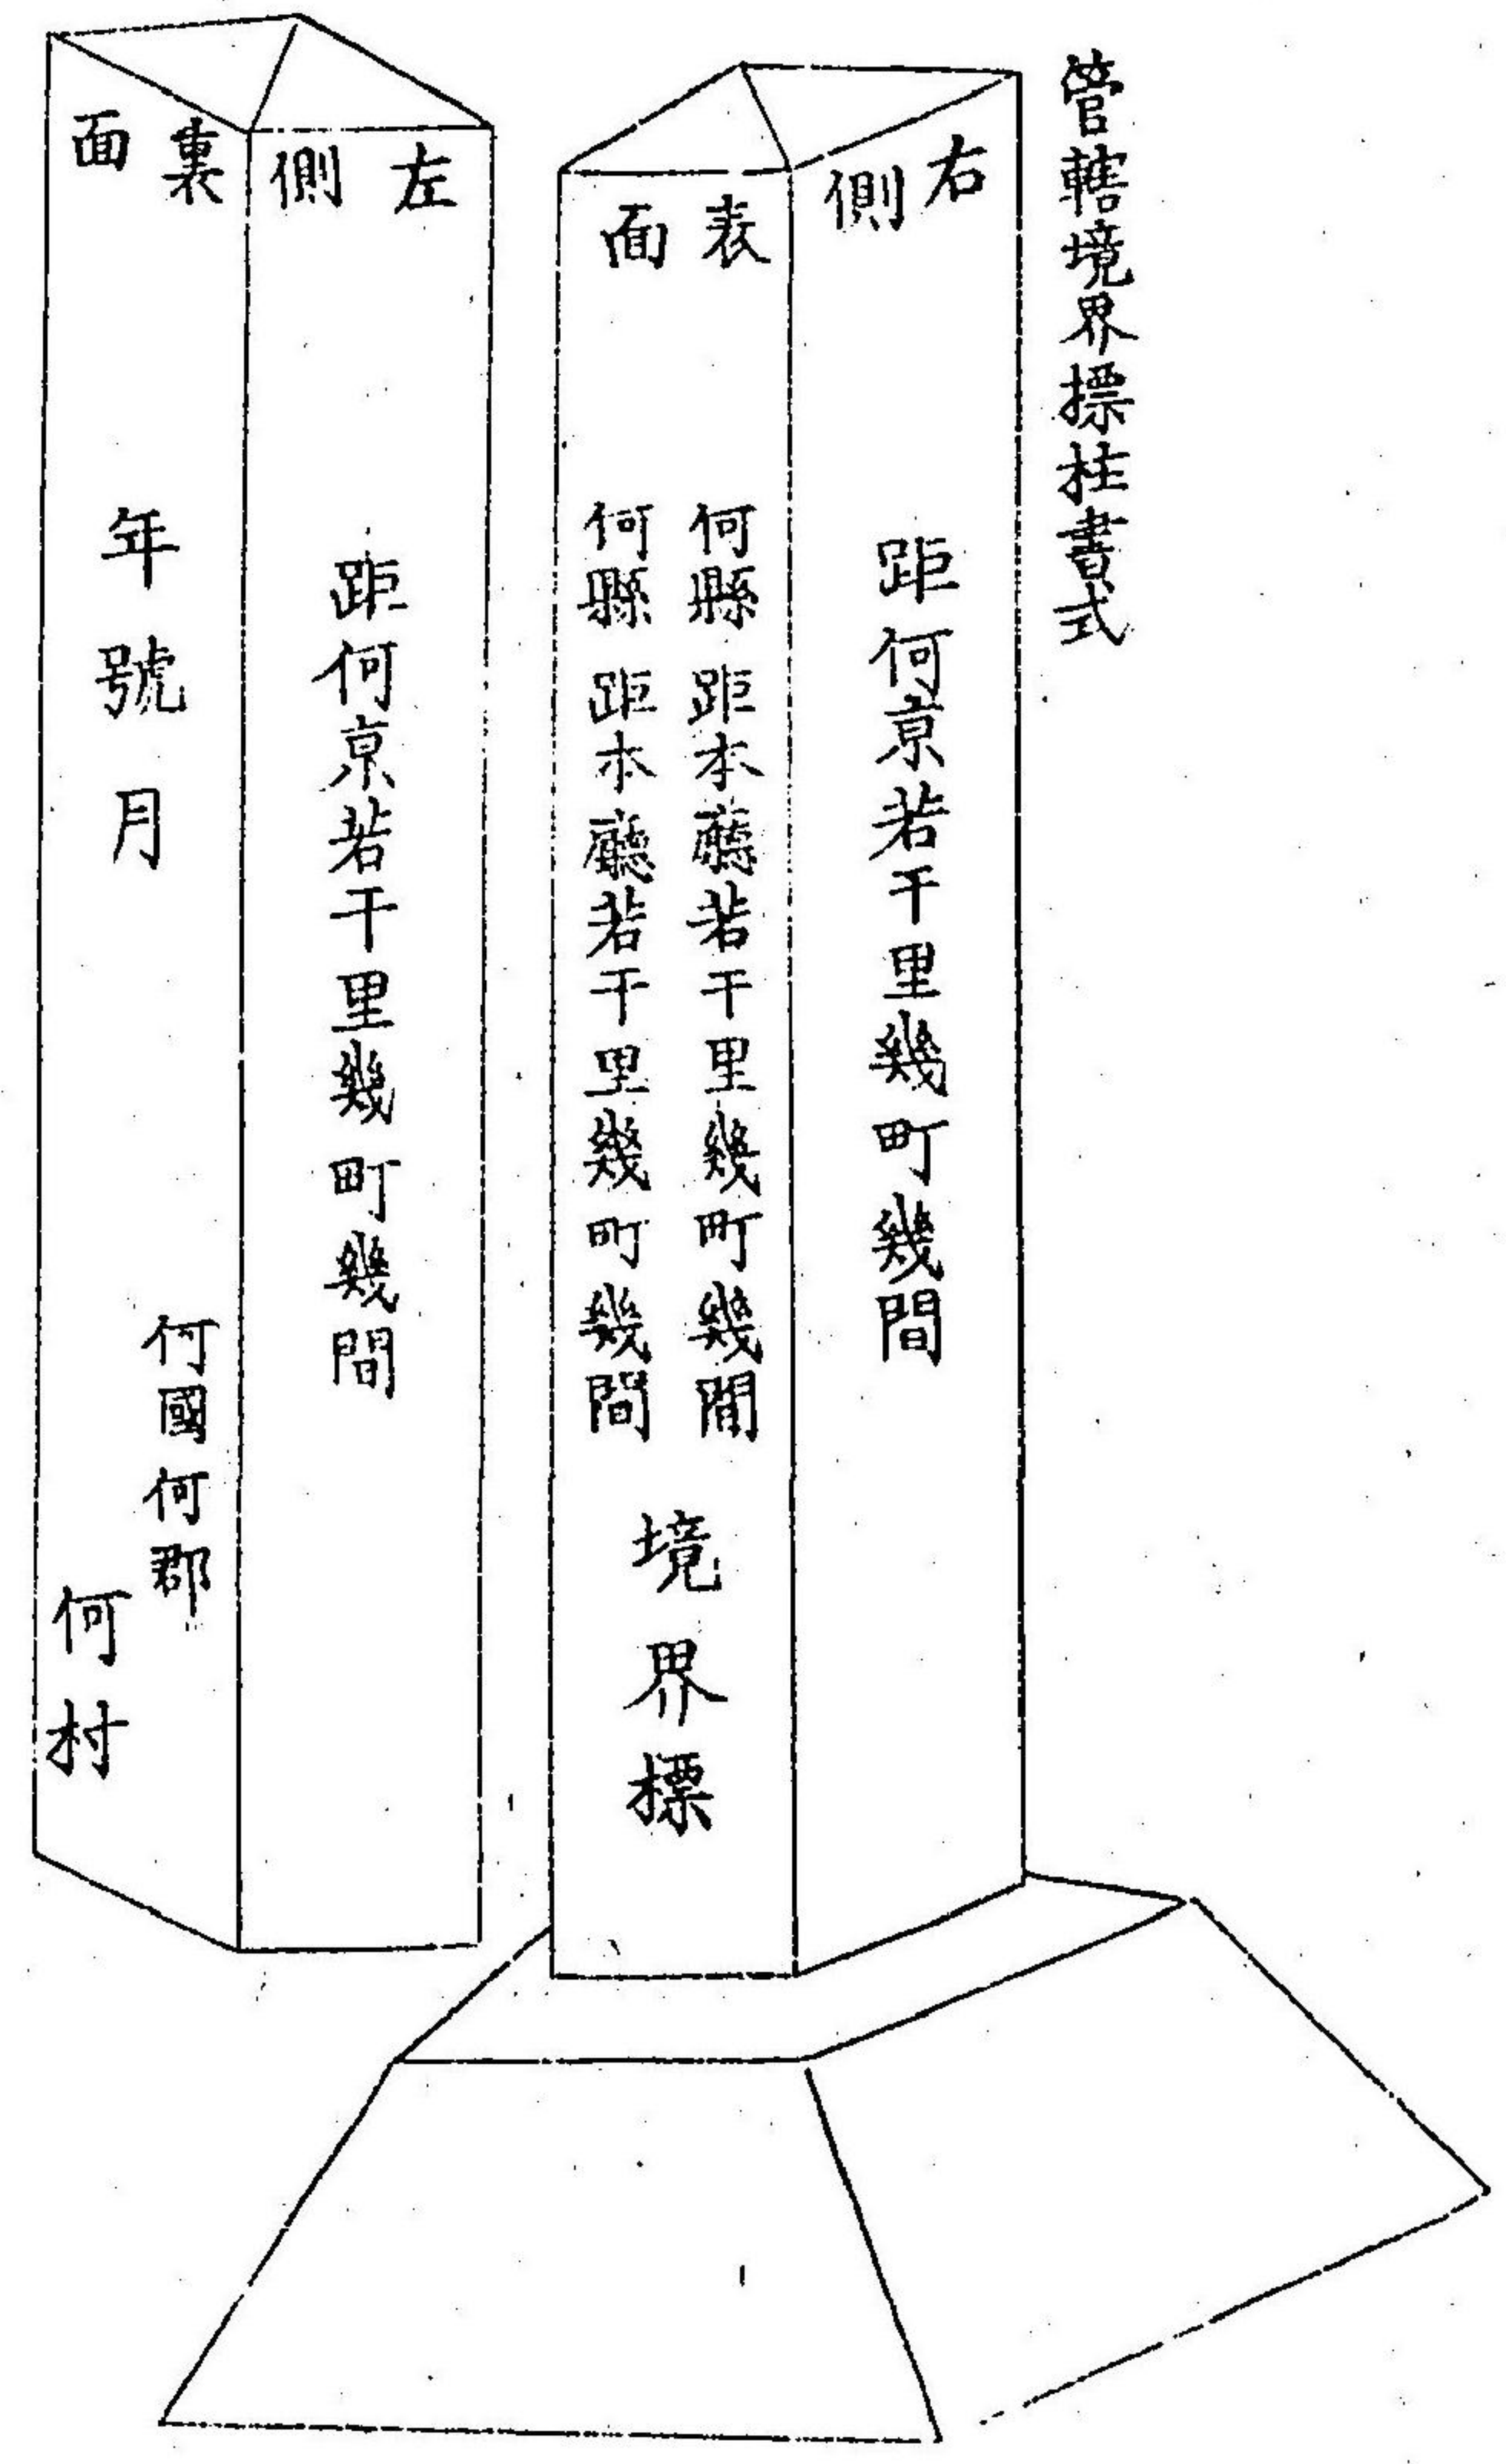 管轄境界標柱書式
右側
距何京若干里幾町幾間
表面
何縣 距本廳若干里幾町幾間
何縣 距本廳若干里幾町幾間
境界標
左側
距何京若干里幾町幾間
裏面
年號月
何國何郡
何村